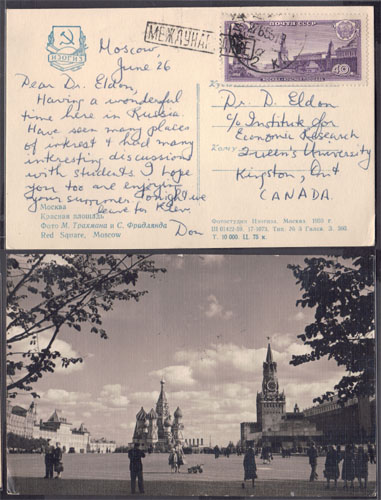 ИЗОГИЗ
МЕЖДУНАР
ПОЧТА СССР
40
Moscow,
June 26
Dear Dr. Eldon,
Having a wonderful
time here in Russia.
Have seen many places
of interest & had many
interesting discussions
with students. I hope
you too are enjoying
your summer. Tonight we
leave for Kiev.
Don
Dr. D. Eldon
c/o Institute for
Economic Research
Queen's University
Kingston, Ont
CANADA.
Кому
Москва
Красная площадь
Фото М. Трахмана и С. Фридлянда
Red Square, Moscow
Фотостудия Изогиза Москва